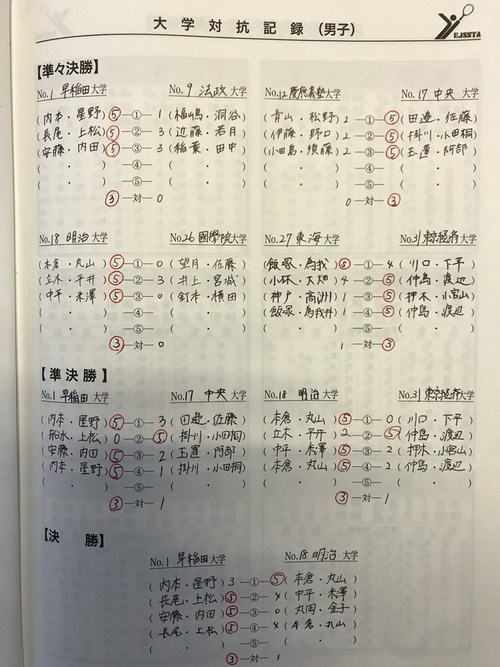 大学対抗記録（男子）
EJSSTA
【準々決勝】
No.1 早稲田大学 No.9 法政大学
(内本・星野) ⑤ ―①― 1 (福嶋・洞谷)
(長尾・上松) ⑤ ―②― 3 (近藤・若月)
(安藤・内田) ⑤ ―③― 3 (稲葉・田中)
( ・ ) ―④― ( ・ )
( ・ ) ―⑤― ( ・ )
③ ―対― 0
No.12 慶應義塾大学 No.17 中央大学
(青山・松野) 2 ―①― ⑤ (田邊・佐藤)
(伊藤・野口) 2 ―②― ⑤ (掛川・小田桐)
(小田島・須藤) 2 ―③― ⑤ (玉置・阿部)
( ・ ) ―④― ( ・ )
( ・ ) ―⑤― ( ・ )
0 ―対― ③
No.18 明治大学 No.26 國學院大学
(本倉・丸山) ⑤ ―①― 0 (望月・佐藤)
(立木・平井) ⑤ ―②― 3 (井上・宮城)
(中平・米澤) ⑤ ―③― 0 (釘本・横田)
( ・ ) ―④― ( ・ )
( ・ ) ―⑤― ( ・ )
③ ―対― 0
No.27 東海大学 No.31 東京経済大学
(飯塚・為我井) ⑤ ―①― 4 (川口・下平)
(小林・大畑) 4 ―②― ⑤ (仲島・渡辺)
(神戸・高洲) 1 ―③― ⑤ (押木・小宮山)
(飯塚・為我井) 1 ―④― ⑤ (仲島・渡辺)
( ・ ) ―⑤― ( ・ )
1 ―対― ③
【準決勝】
No.1 早稲田大学 No.17 中央大学
(内本・星野) ⑤ ―①― 3 (田邊・佐藤)
(船水・上松) 0 ―②― ⑤ (掛川・小田桐)
(安藤・内田) ⑤ ―③― 2 (玉置・阿部)
(内本・星野) ⑤ ―④― 1 (掛川・小田桐)
( ・ ) ―⑤― ( ・ )
③ ―対― 1
No.18 明治大学 No.31 東京経済大学
(本倉・丸山) ⑤ ―①― 0 (川口・下平)
(立木・平井) 2 ―②― ⑤ (仲島・渡辺)
(中平・米澤) ⑤ ―③― 2 (押木・小宮山)
(本倉・丸山) ⑤ ―④― 2 (仲島・渡辺)
( ・ ) ―⑤― ( ・ )
③ ―対― 1
【決勝】
No.1 早稲田大学 No.18 明治大学
(内本・星野) 3 ―①― ⑤ (本倉・丸山)
(長尾・上松) ⑤ ―②― 4 (中平・米澤)
(安藤・内田) ⑤ ―③― 0 (丸岡・金子)
(長尾・上松) ⑤ ―④― 4 (本倉・丸山)
( ・ ) ―⑤― ( ・ )
③ ―対― 1